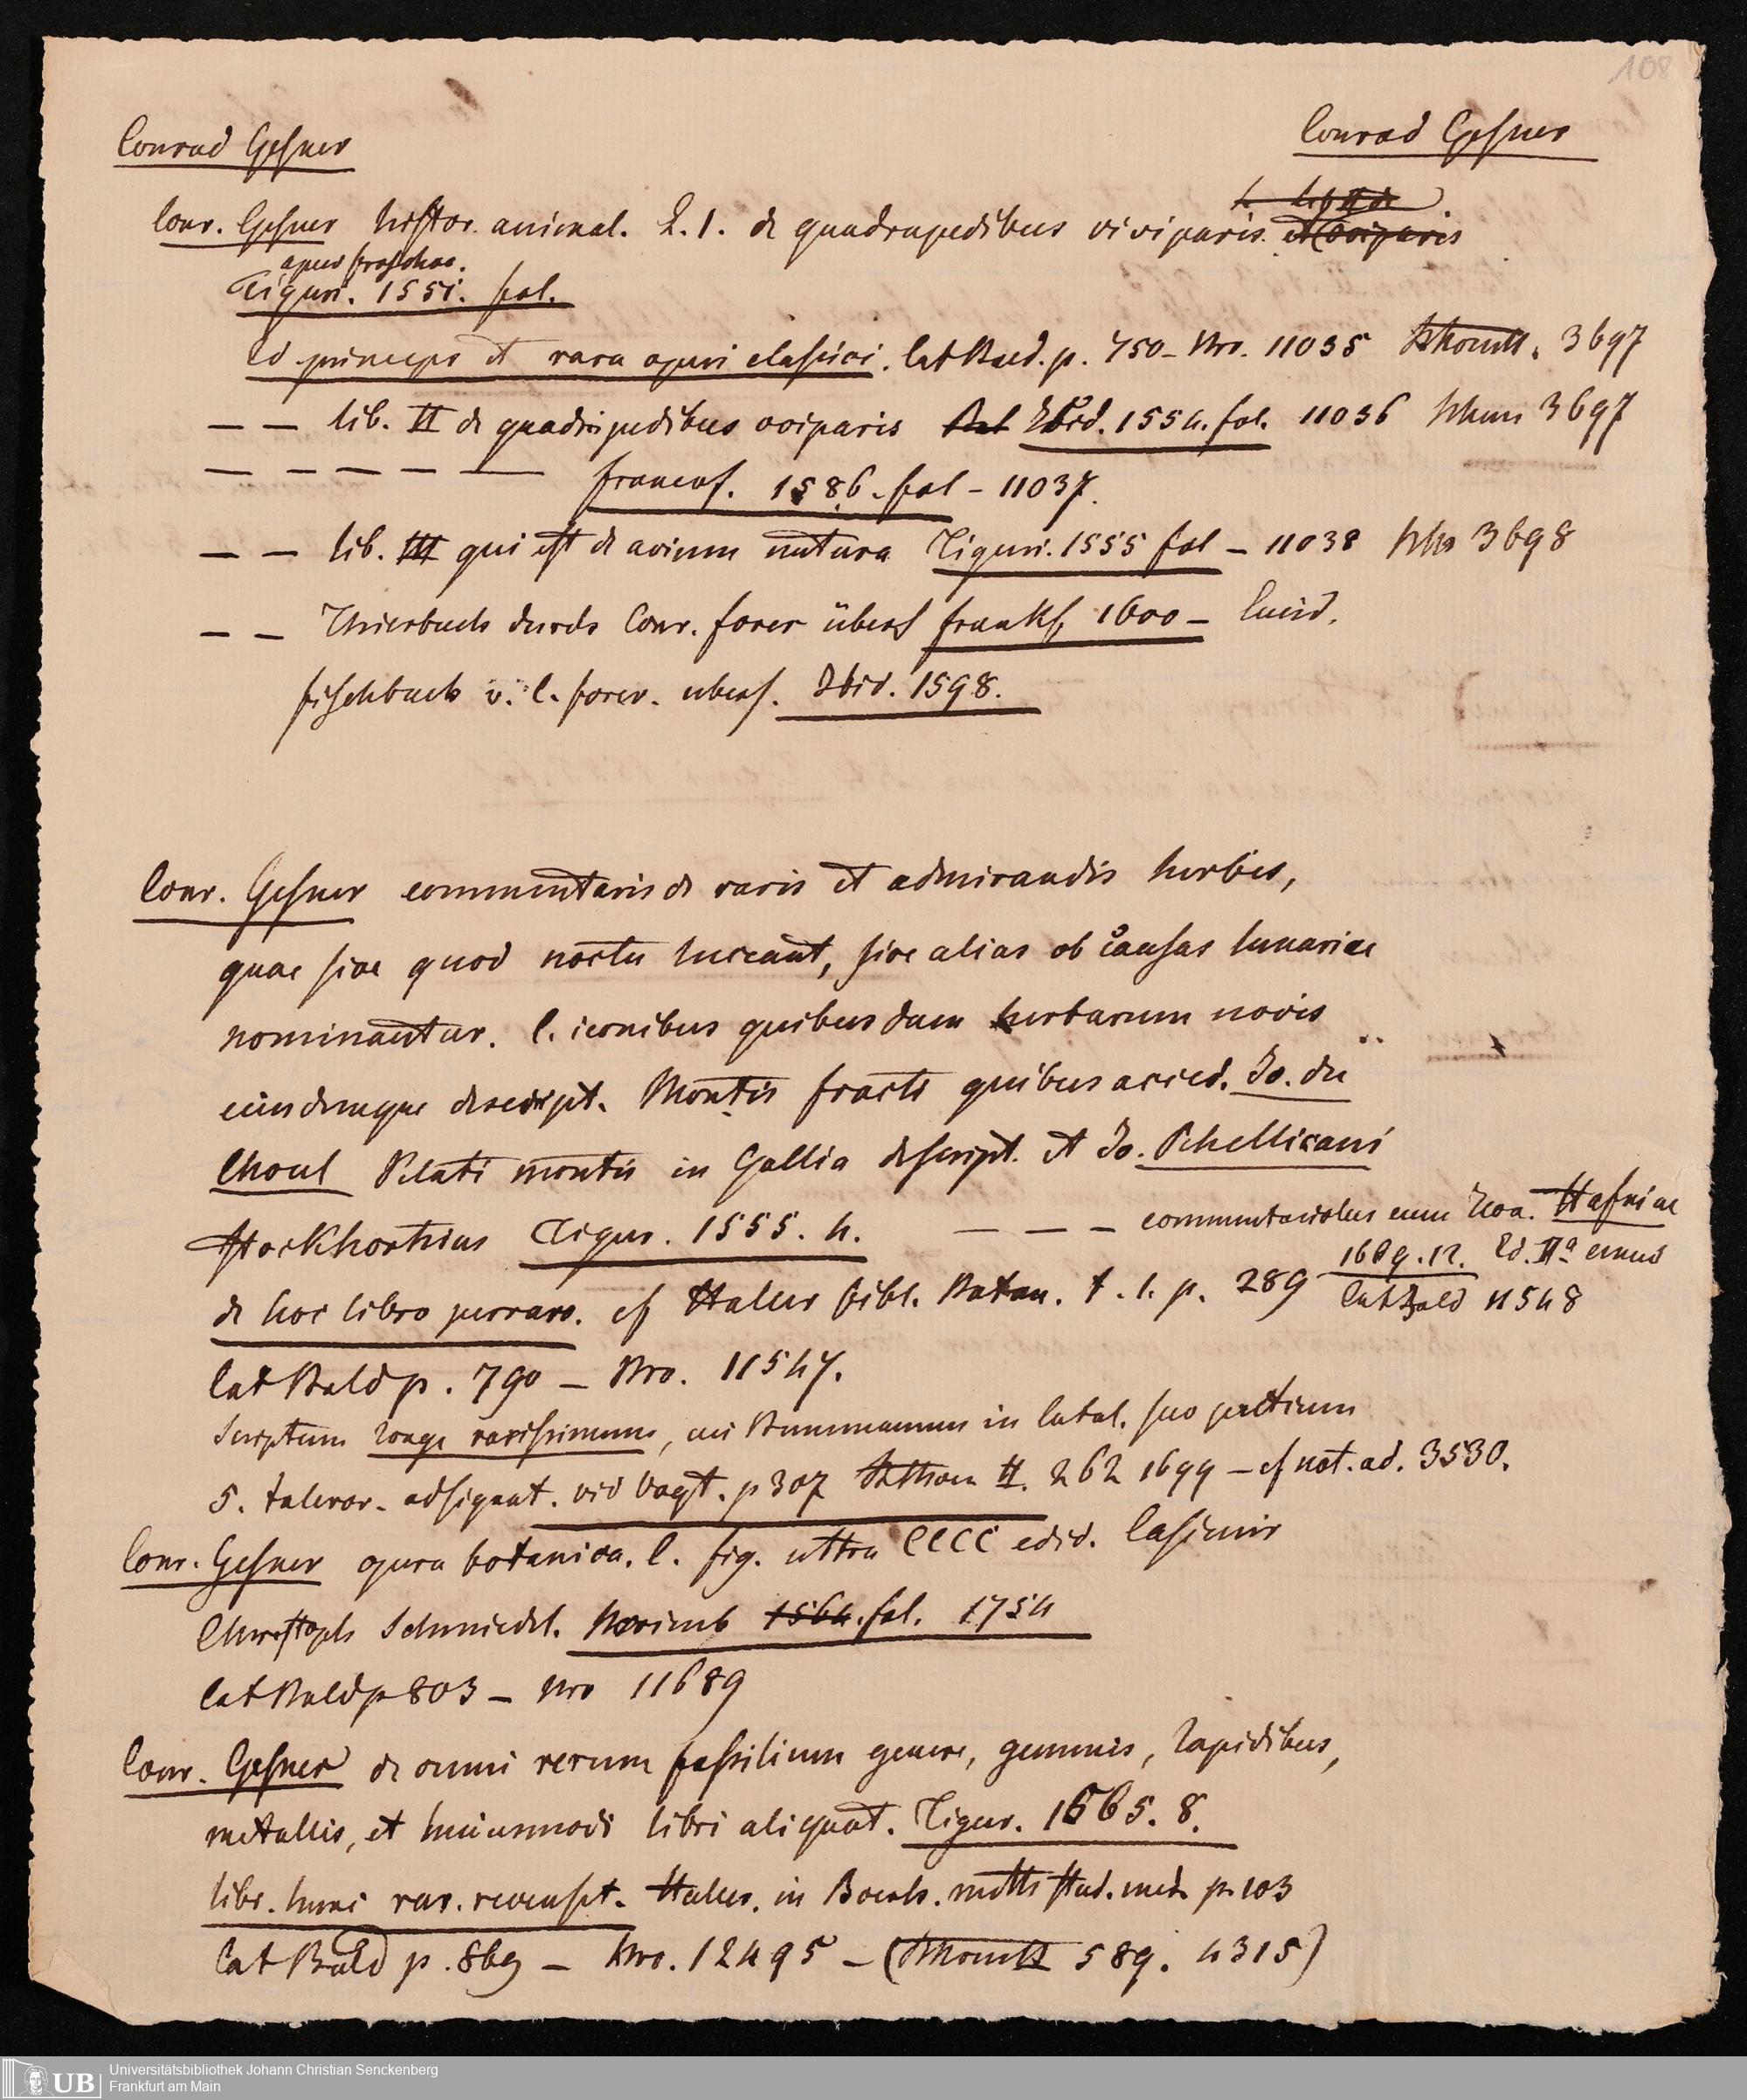 108
Conrad Gesner
Conrad Gesner
Conr. Gesner histor. animal. L. 1. de quadrupedibus viviparis et oviparis
apud froschov.
Tiguri. 1551. fol.
Ed princeps et rara operis classici. Cat Bald. p. 750 - Nro. 11035 3697
— — lib. II de quadrupedibus oviparis Ibid. 1554. fol. 11036 3697
— — — — — francof. 1586. fol - 11037.
— — lib. III qui est de avium natura Tiguri. 1555 fol - 11038 3698
— — Thierbuch durch Conr. forer übers frankf. 1600 -
fischbuch v. C. forer. übers. Ibid. 1598.
Conr. Gesner commentaris de raris et admirandis herbis,
quae sive quod noctu luceant, sive alias ob causas lunariae
nominantur. C. iconibus quibusdam herbarum novis
eiusdemque descript. Montis fracti quibus acced. Jo. du
Choul Pilati montis in Gallia descript. et Jo. Rhellicani
Stockhornias Tigur. 1555. 4. — — — commentariolus cum Icon. Hafniae
1669. 12. Ed. IIa eiusd
de hoc libro perraro. cf Haller bibl. Botan. t. 1. p. 289 Cat Bald 11548
Cat Bald p. 790 - Nro. 11547.
Scriptum longe rarissimum, cui Bunnemannus in Catal. suo pretium
5. taleror. adsignat. vid Vogt. p 307 II. 262 1699 - cf not. ad. 3530.
Conr. Gesner opera botanica. C. fig. ultra CCCC edid. Casimir
Christoph Schmiedel. Norimb 1564. fol. 1754
Cat Bald p 803 - Nro 11689
Conr. Gesner de omni rerum fossilium genere, gemmis, lapidibus,
metallis, et huiusmodi libri aliquot. Tigur. 1565. 8.
libr. hunc rar. recenset. Haller. in Boerh. meth stud. med. p. 103
Cat Bald p. 869 - Nro. 12495 - ( 589. 4315)
Universitätsbibliothek Johann Christian Senckenberg
Frankfurt am Main
UB